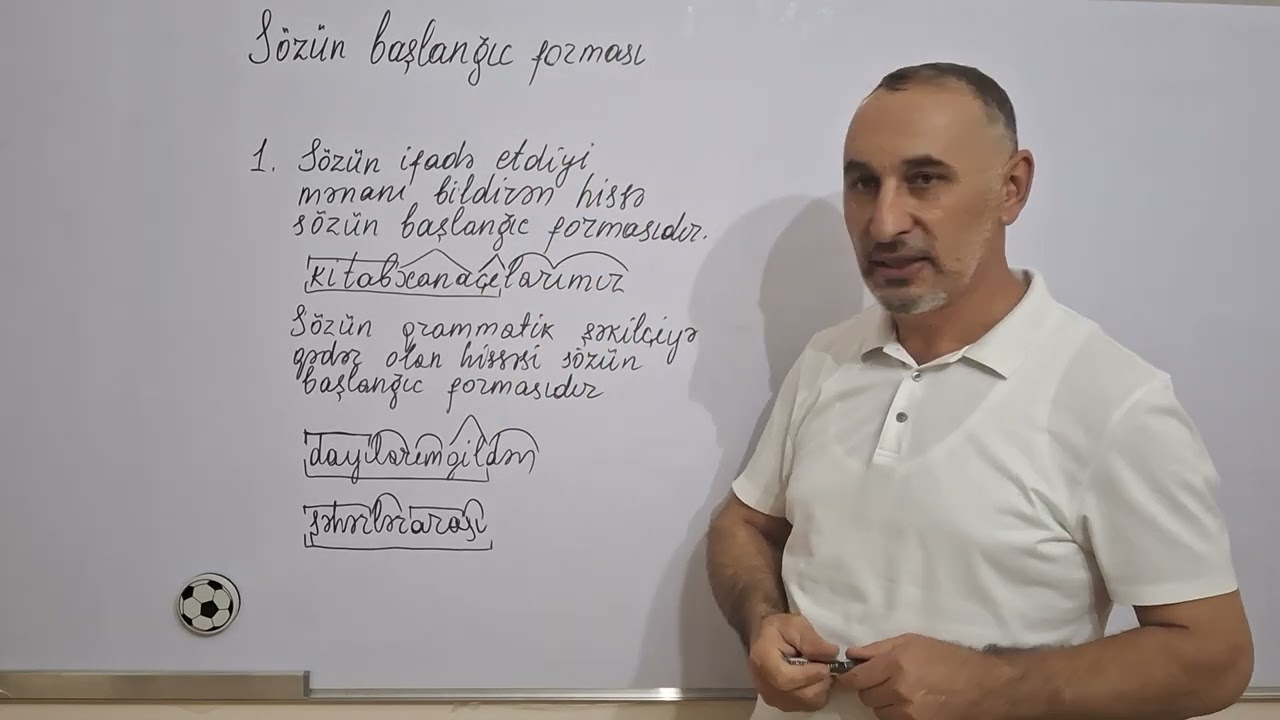 Sözün başlanğıc forması
1. Sözün ifadə etdiyi
mənanı bildirən hissə
sözün başlanğıc formasıdır.
kitabxanaçılarımız
Sözün qrammatik şəkilçiyə
qədər olan hissəsi sözün
başlanğıc formasıdır
dayılarımgildən
şəhərlərarası